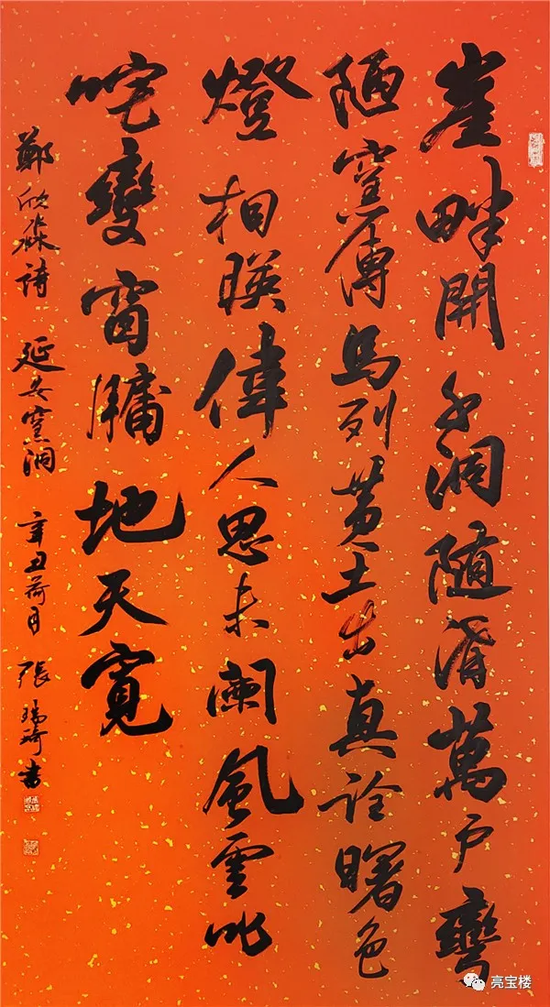 崖畔開千洞隨萬戶彎
陋窯傳馬列黃土出真詮曙色
燈相暎偉人思未闌風雲叱
咤變窗牖地天寬
鄭欣淼詩 延安窯洞 辛丑荷月 張瑞琦書
亮宝楼